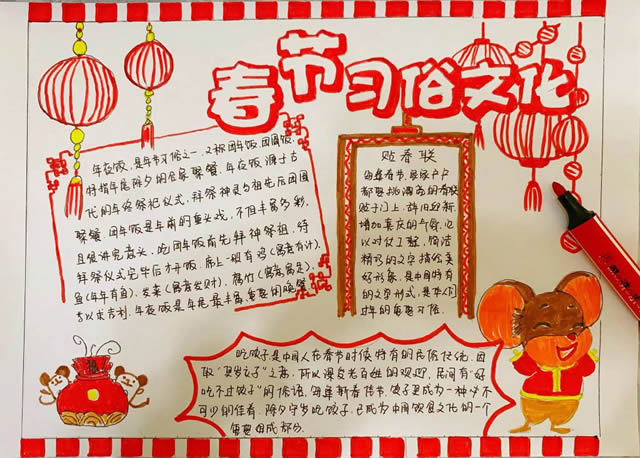 春节习俗文化
年夜饭,是年节习俗之一,又称团年饭,团圆饭,
特指年尾除夕的合家聚餐,年夜饭源于古
代的年终祭祀仪式,拜祭神灵与祖先后团圆
聚餐。团年饭是年前的重头戏,不但丰富多彩,
且很讲究意头,吃团年饭前先拜神祭祖,待
拜祭仪式完毕后才开饭,席上一般有鸡(寓意有计),
鱼(年年有鱼)、发菜(寓意发财)、腐竹(寓意富足),
以求吉利。年夜饭是年尾最丰盛、重要的晚餐
贴春联
每年春节,每家户户
都要挑漂亮的春联
贴于门上,辞旧迎新,
增加喜庆的气氛,它
以对仗工整,简洁
精巧的文字描绘美
好形象,是中国特有
的文字形式,是本人们
过年的重要习俗。
吃饺子是中国人在春节时候特有的民俗传统,因
取"更岁交子"之意,所以深受老百姓的欢迎,民间有"好
吃不过饺子"的俗语,每年新春佳节,饺子更成为一种必不
可少的佳肴。除夕守岁吃饺子,已成为中国饮食文化的一个
重要组成部分。